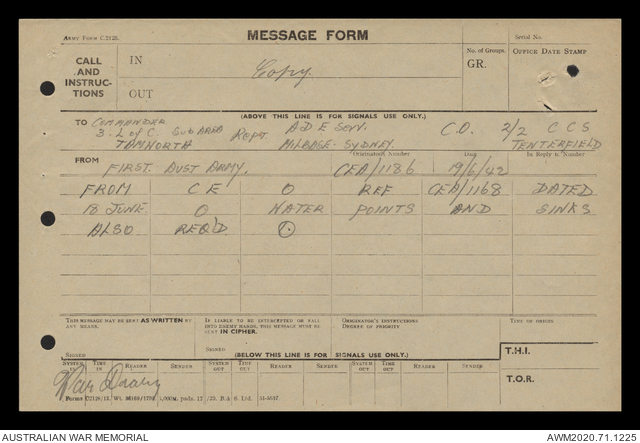 ARMY FORM C.2128.
MESSAGE FORM
Serial No.
CALL AND INSTRUCTIONS
IN
Copy.
OUT
No. of Groups.
GR.
OFFICE DATE STAMP
(ABOVE THIS LINE IS FOR SIGNALS USE ONLY.)
TO COMMANDER
3. L of C. SUB AREA REPT A D E Serv. C.O. 2/2 C C S
TAMWORTH MILBASE-SYDNEY. TENTERFIELD
Originator's Number Day In Reply to Number
FROM FIRST AUST ARMY. CEA/1186 19/6/42
FROM C E O REF CEA/1168 DATED
18 JUNE O WATER POINTS AND SINKS
ALSO REQ'D
THIS MESSAGE MAY BE SENT AS WRITTEN BY ANY MEANS.
IF LIABLE TO BE INTERCEPTED OR FALL INTO ENEMY HANDS, THIS MESSAGE MUST BE SENT IN CIPHER.
ORIGINATOR'S INSTRUCTIONS DEGREE OF PRIORITY
TIME OF ORIGIN
SIGNED
SIGNED
(BELOW THIS LINE IS FOR SIGNALS USE ONLY.)
T.H.I.
SYSTEM IN TIME IN READER SENDER SYSTEM OUT TIME OUT READER SENDER SYSTEM OUT TIME OUT READER SENDER
T.O.R.
War Diary
AUSTRALIAN WAR MEMORIAL
AWM2020.71.1225